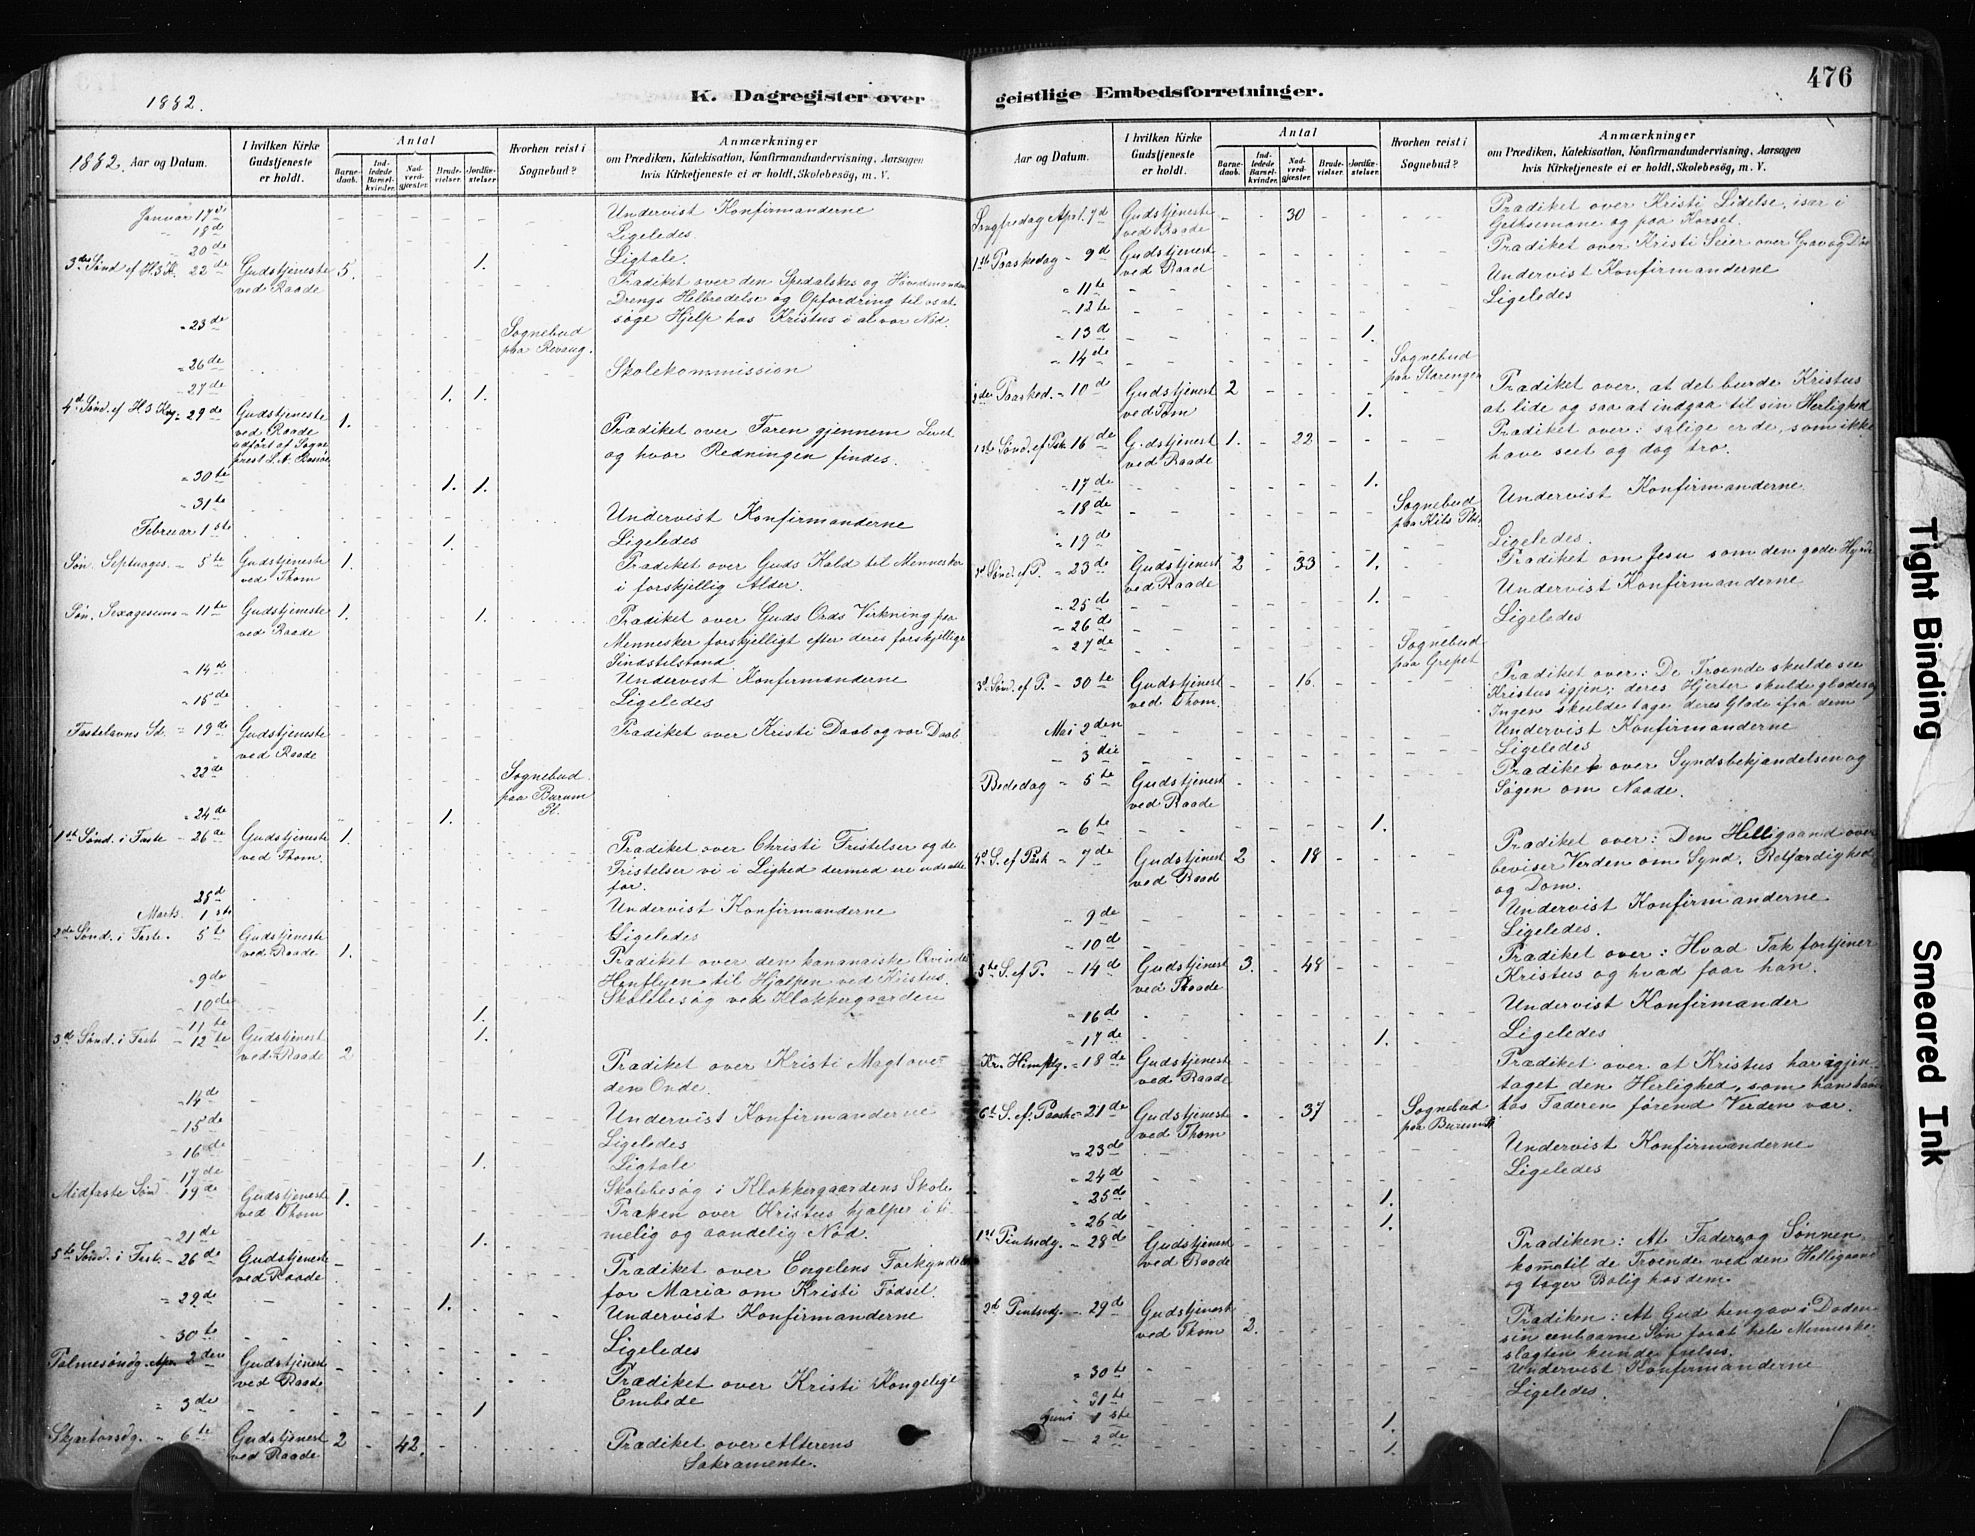 476
1882.
K. Dagregister over geistlige Embedsforretninger.
1882. Aar og Datum.
I hvilken Kirke Gudstjeneste er holdt.
Antal
Barne-daab.
Ind-ledede Barsel-kvinder.
Nad-verd-gjæster.
Brude-vielser.
Jordfæ-stelser.
Hvorhen reist i Sognebud?
Anmærkninger
om Prædiken, Katekisation, Konfirmandundervisning, Aarsagen
hvis Kirketjeneste ei er holdt, Skolebesøg, m. V.
Januar 17de Undervist Konfirmanderne
" 18de Ligeledes.
" 20de 1. Ligtale.
3de Sønd ef H3K. 22de Gudstjeneste ved Raade 5. Prædiket over den Spedalskes og Høvedsmandens
Drengs Helbredelse og Opfordring til os at
søge Hjelp hos Kristus i al vor Nød.
" 23de Sognebud paa Revaug.
" 26de Skolekommission
" 27de 1. 1.
4de Sønd. ef H3 Kng. 29de Gudstjeneste ved Raade 1. Prædiket over Faren gjennem Livet
udført af Sogne prest og hvor Redningen findes.
" 30te 1. 1.
" 31te Undervist Konfirmanderne
Februar 1ste 1. Ligeledes
Søn. Septuages. 5te Gudstjeneste ved Thom 1. Prædiket over Guds Kald til Mennesker
i forskjellig Alder.
Søn. Sexagesima 11te Gudstjeneste ved Raade 1. 1. Prædiket over Guds Ords Virkning paa
Mennesker forskjelligt efter deres forskjellige
Sindstilstand.
" 14de Undervist Konfirmanderne
" 15de Ligeledes
Fastelavns Sd. 19de Gudstjeneste ved Raade Prædiket over Kristi Daab og vor Daab
" 22de Sognebud paa Burum Pl.
" 24de 1.
1ste Sønd. i Faste 26de Gudstjeneste ved Thom 1. Prædiket over Christi Fristelser og de
Fristelser vi i Lighed dermed ere udsatte
for.
28de Undervist Konfirmanderne
Marts. 1ste Ligeledes
2de Sønd. i Faste. 5te Gudstjeneste ved Raade 1. Prædiket over den kananæiske Qvindes
Henflyen til Hjælpen ved Kristus.
" 9de Skolebesøg ved Klokkergaarden
" 10de 1.
" 11te 1.
3de Sønd. i Fast 12te Gudstjenest ved Raade 2 Prædiket over Kristi Magt over
den Onde.
" 14de Undervist Konfirmanderne
" 15de Ligeledes
" 16de 1. Ligtale
17de Skolebesøg i Klokkergaardens Skole
Midfaste Søn 19de Gudstjenest ved Thom 1. Præken over Kristus hjælper i ti-
melig og aandelig Nød.
" 21de 1.
5te Sønd. i Fast. 26de Gudstjenest ved Raade Prædiket over Engelens Forkyndelse
for Maria om Kristi Fødsel.
" 29de 1. Undervist Konfirmanderne
" 30te Ligeledes
Palmesøndg. Apr. 2den Gudstjenest ved Raade Prædiket over Kristi Kongelige
Embede
" 3de 1
Skjærtorsdg. 6te Gudstjenest ved Raade 2 42. Prædiket over Alterens
Sakramente.
Aar og Datum.
I hvilken Kirke Gudstjeneste er holdt.
Antal
Barne-daab.
Ind-ledede Barsel-kvinder.
Nad-verd-gjæster.
Brude-vielser.
Jordfæ-stelser.
Hvorhen reist i Sognebud?
Anmærkninger
om Prædiken, Katekisation, Konfirmandundervisning, Aarsagen
hvis Kirketjeneste ei er holdt, Skolebesøg, m. V.
Langfredag April 7de Gudstjeneste ved Raade 30 Prædiket over Kristi Lidelse, især i
Gethsemane og paa Korset.
1ste Paaskedag 9de Gudstjenest ved Raad Prædiket over Kristi Seier over Grav og Død
" 11te Undervist Konfirmanderne
" 12te Ligeledes
" 13de 1.
" 14de Sognebud paa Starengen
2den Paasked. 10de Gudstjenest ved Tom 2 1. Prædiket over, at det burde Kristus
at lide og saa at indgaa til sin Herlighed
1ste Sønd. ef Psk 16de Gudstjenest ved Raade 1. 22. Prædiket over: salige er de, som ikke
have seet og dog tro.
" 17de 1.
" 18de Sognebud paa Kils Undervist Konfirmanderne.
" 19de Ligeledes.
2d Sønd. ef P. 23de Gudstjenest ved Raade 2 33 1. Prædiket om Jesu som den gode Hyrde
" 25de 1. Undervist Konfirmanderne
" 26de Ligeledes
" 27de Sognebud paa Grepet
3d Sønd. ef P. 30te Gudstjenest ved Thom. 16. Prædiket over: De Troende skulde see
Kristus igjen; deres Hjerter skulde glædes og
Ingen skulde tage deres Glæde ifra dem
Mai 2den Undervist Konfirmanderne
" 3die Ligeledes
Bededag 5te Gudstjenest ved Raade Prædiket over Syndsbekjendelsen og
Søgen om Naade.
" 6te 1.
4d S. ef Pask 7de Gudstjenest ved Raad 2 18 Prædiket over: Den Helligaand over
beviser Verden om Synd, Retfærdighed
og Dom.
" 9de Undervist Konfirmanderne
" 10de Ligeledes.
5te S. ef P. 14de Gudstjenest ved Raade 3. 48 Prædiket over: Hvad Tak fortjener
Kristus og hvad faar han.
" 16de Undervist Konfirmander
" 17de 1. Ligeledes
Kr. Himfdg. 18de Gudstjenest ved Raade Prædiket over at Kristus har igjen-
taget den Herlighed, som han havde
hos Faderen førend Verden var.
6te S. ef. Paaske 21de Gudstjenest ved Thom 37 Sognebud paa Burum
" 23de Undervist Konfirmanderne
" 24de Ligeledes
" 25de 1.
" 26de 1.
1ste Pintsedg. 28de Gudstjenest ved Raade Prædiken: At Fader og Sønnen
komme til de Troende ved den Helligaand
og tager Bolig hos dem.
2d Pintsedg. 29de Gudstjenest ved Thom 2. Prædiken: At Gud hengav i Døden
sin enbaarne Søn forat hele Menneske
slægten kunde frelses.
" 30te Undervist Konfirmanderne
" 31te Ligeledes.
Juni 1ste 1.
" 2de 1.
Tight Binding
Smeared Ink